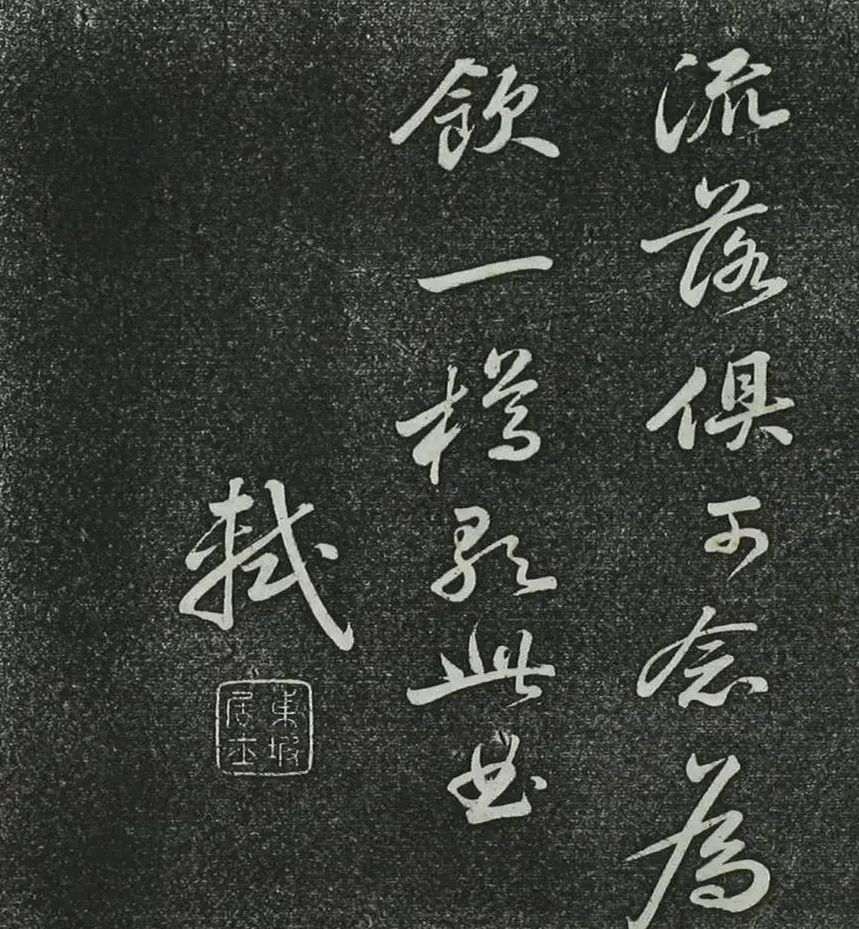 流落俱可念為
飲一樽歌此曲
軾
東坡居士